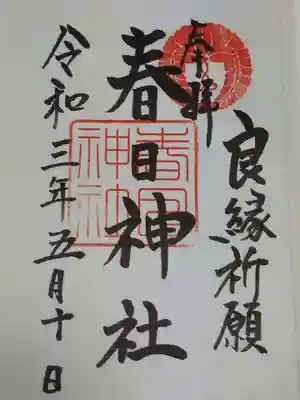 奉拝
良縁祈願
春日神社
令和三年五月十日